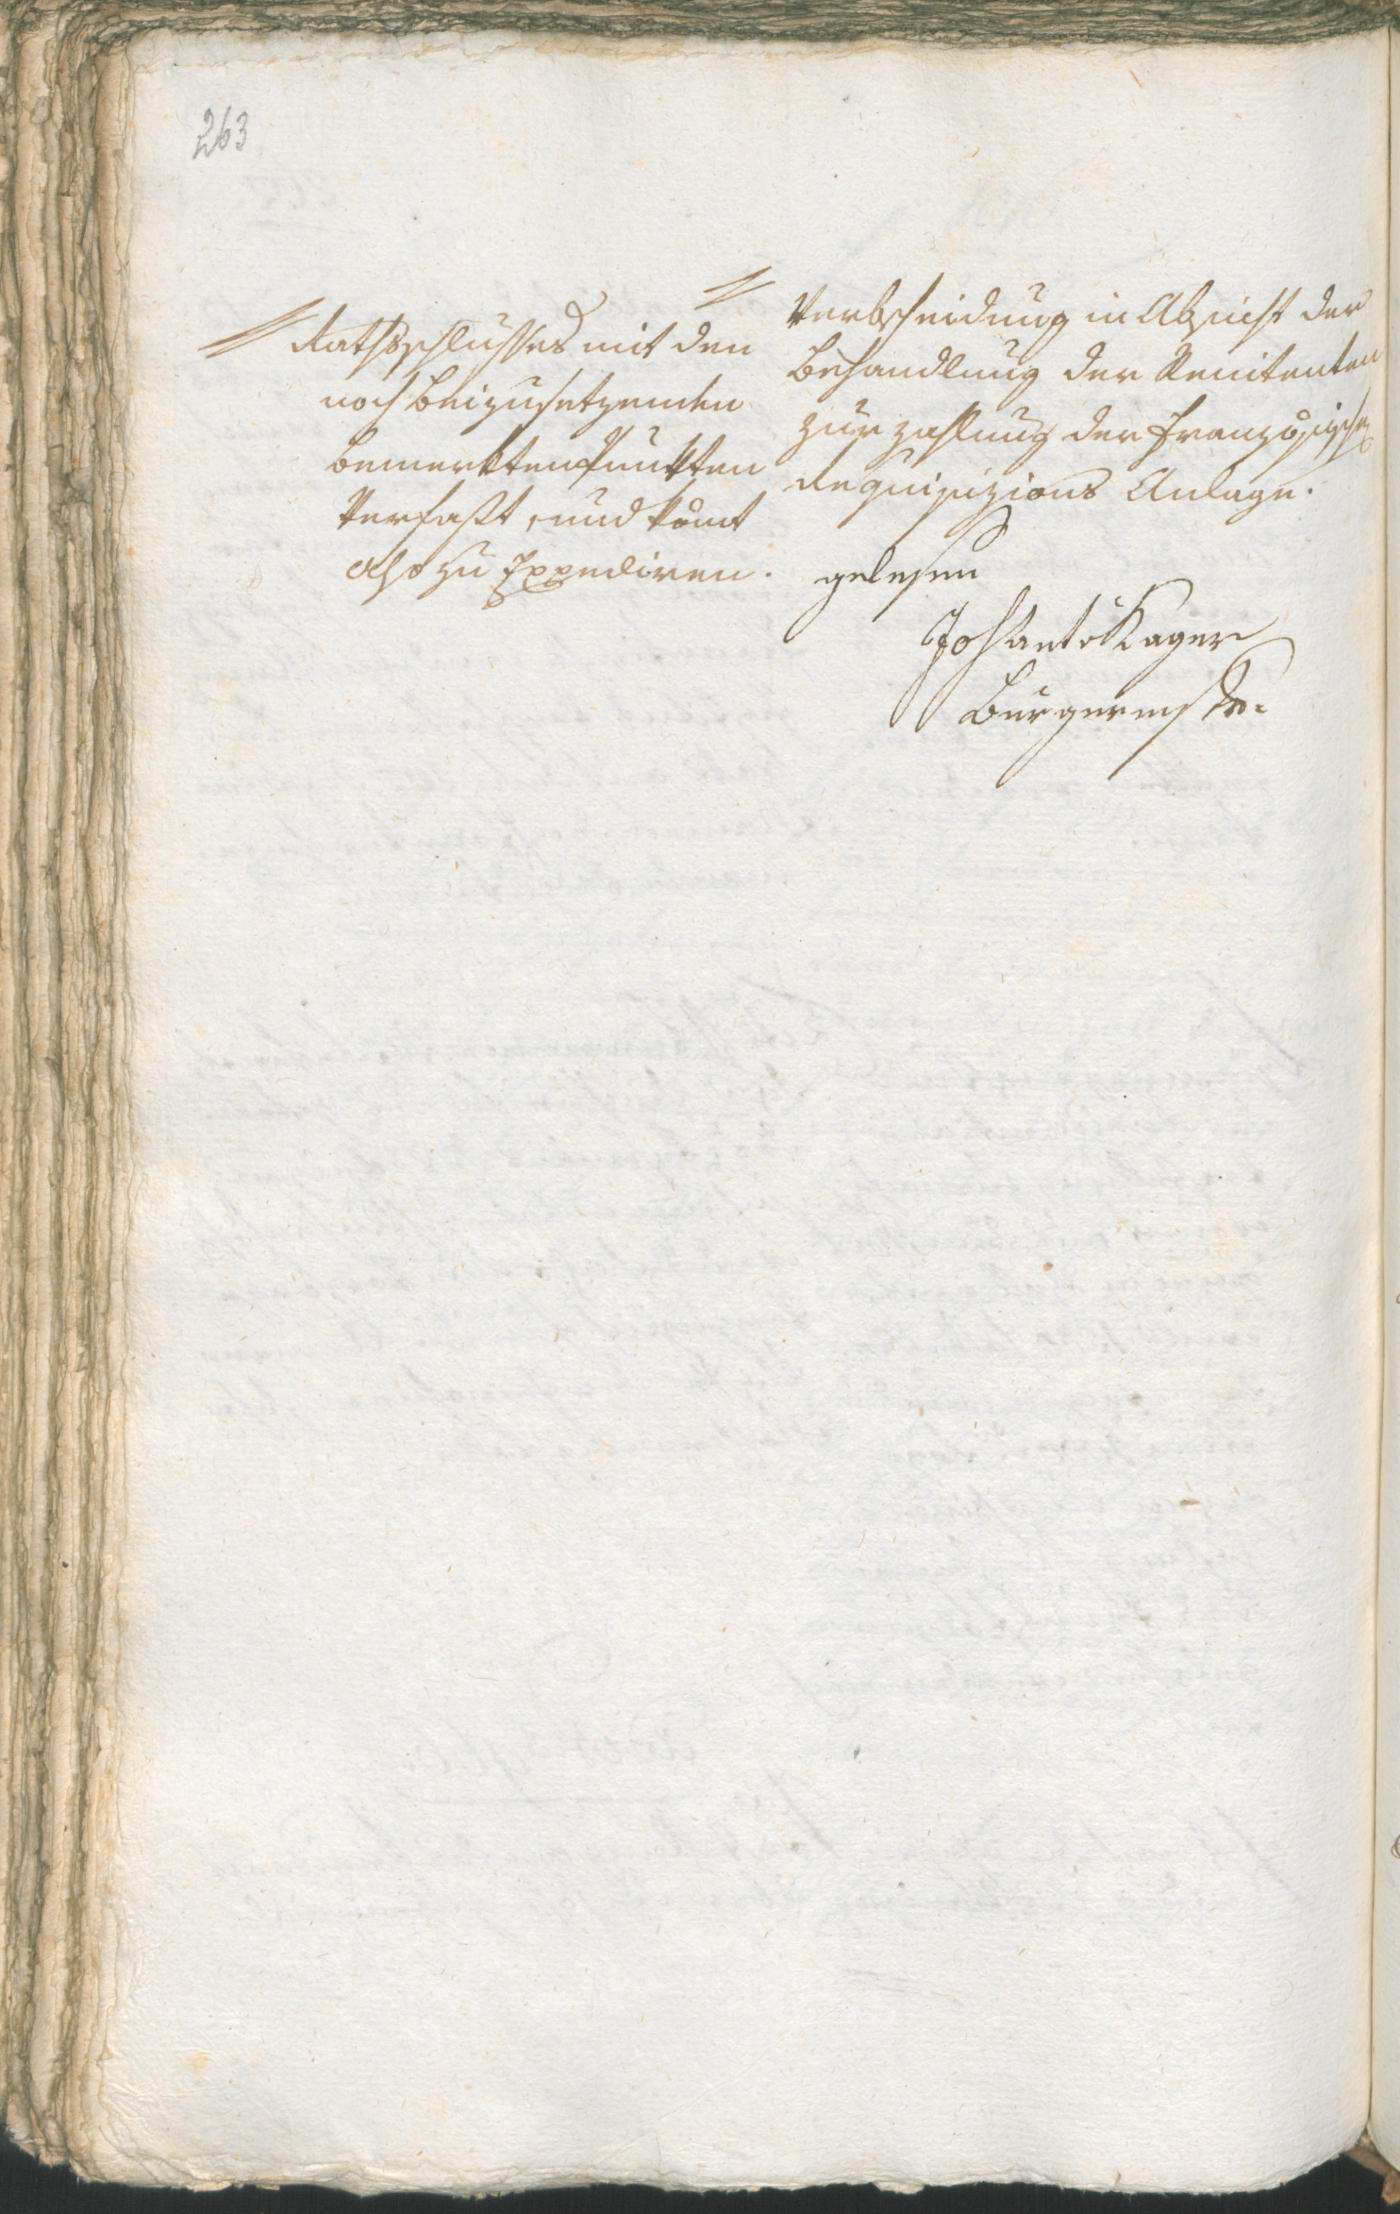 263
Rathsschlusses mit den
noch beizusetzenden
bemerkten Punkten
Verfaßt, und kömt
also zu Expediren.
Verbscheidung in Absicht der
Behandlung der Renitenten
zur zahlung der französischen
Requisizions Anlage.
gelesen
Joh Anto Kager
Burgermstr.